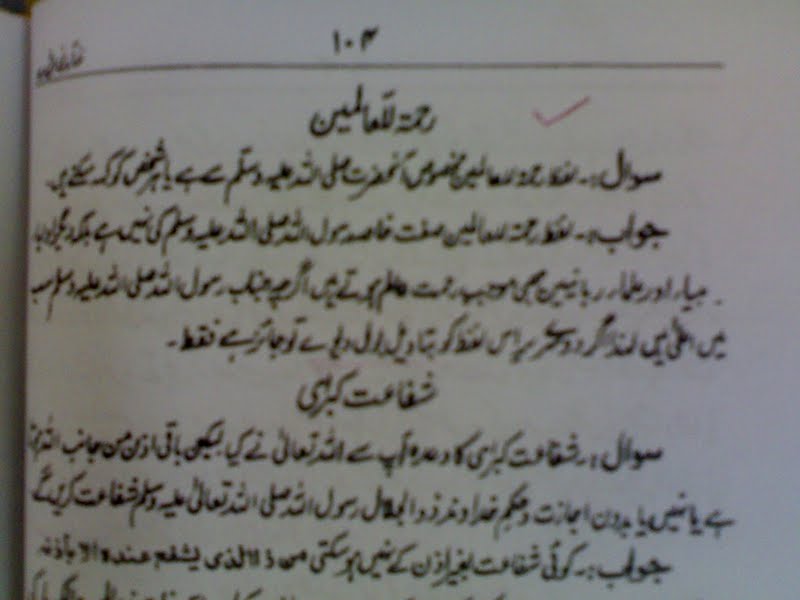 ۱۰۴
رحمۃ للعالمین
سوال :۔ لفظ رحمۃ للعالمین مخصوص آنحضرت صلی اللہ علیہ وسلم سے ہے یا ہر شخص کو کہہ سکتے ہیں۔
جواب :۔ لفظ رحمۃ للعالمین صفت خاصہ رسول اللہ صلی اللہ علیہ وسلم کی نہیں ہے بلکہ دیگر اولیاء
و انبیاء اور علماء ربانیین بھی موجب رحمت عالم ہوتے ہیں اگرچہ جناب رسول اللہ صلی اللہ علیہ وسلم سب
میں اعلیٰ ہیں لہذا اگر دوسرے پر اس لفظ کو بتاویل بول دیوے تو جائز ہے فقط۔
شفاعت کبریٰ
سوال :۔ شفاعت کبریٰ کا وعدہ آپ سے اللہ تعالیٰ نے کیا لیکن باقی اذن من جانب اللہ
ہے یا نہیں یا بدون اجازت و حکم خداوند ذوالجلال رسول اللہ صلی اللہ تعالیٰ علیہ وسلم شفاعت کریں گے
جواب :۔ کوئی شفاعت بغیر اذن کے نہیں ہوسکتی من ذا الذی یشفع عندہ الا باذنہ